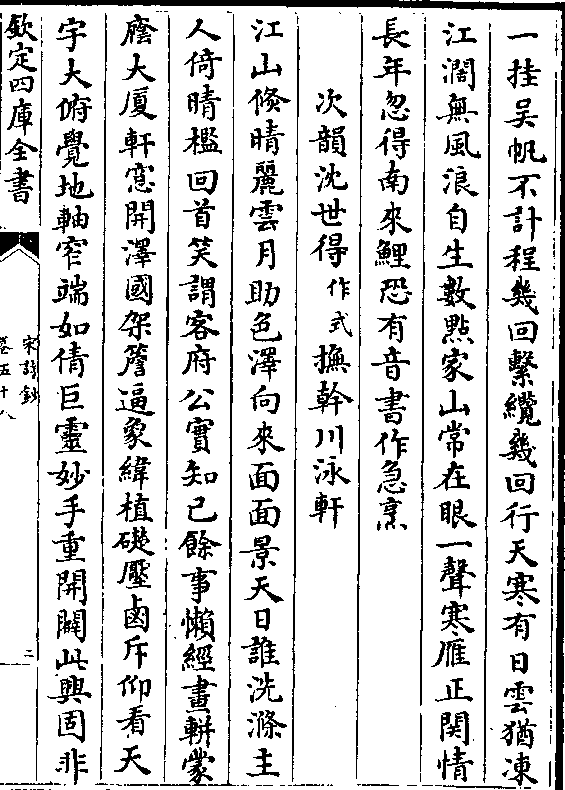 一挂吴帆不計程幾回繫纜幾回行天寒有日雲猶凍
江濶無風浪自生數㸃家山常在眼一聲寒雁正関情
長年忽得南來鯉恐有音書作急烹
次韻沈世得作式撫幹川泳軒
江山倐晴麗雲月助色澤向來面面景天日誰洗滌主
人倚晴檻回首笑謂客府公實知己餘事懶經畫軿蒙
廕大厦軒窓開澤國架簷逼象緯植礎壓鹵斥仰看天
宇大俯覺地軸窄端如倩巨靈妙手重開闢此興固非
欽定四庫全書
宋詩鈔
卷五十八
二